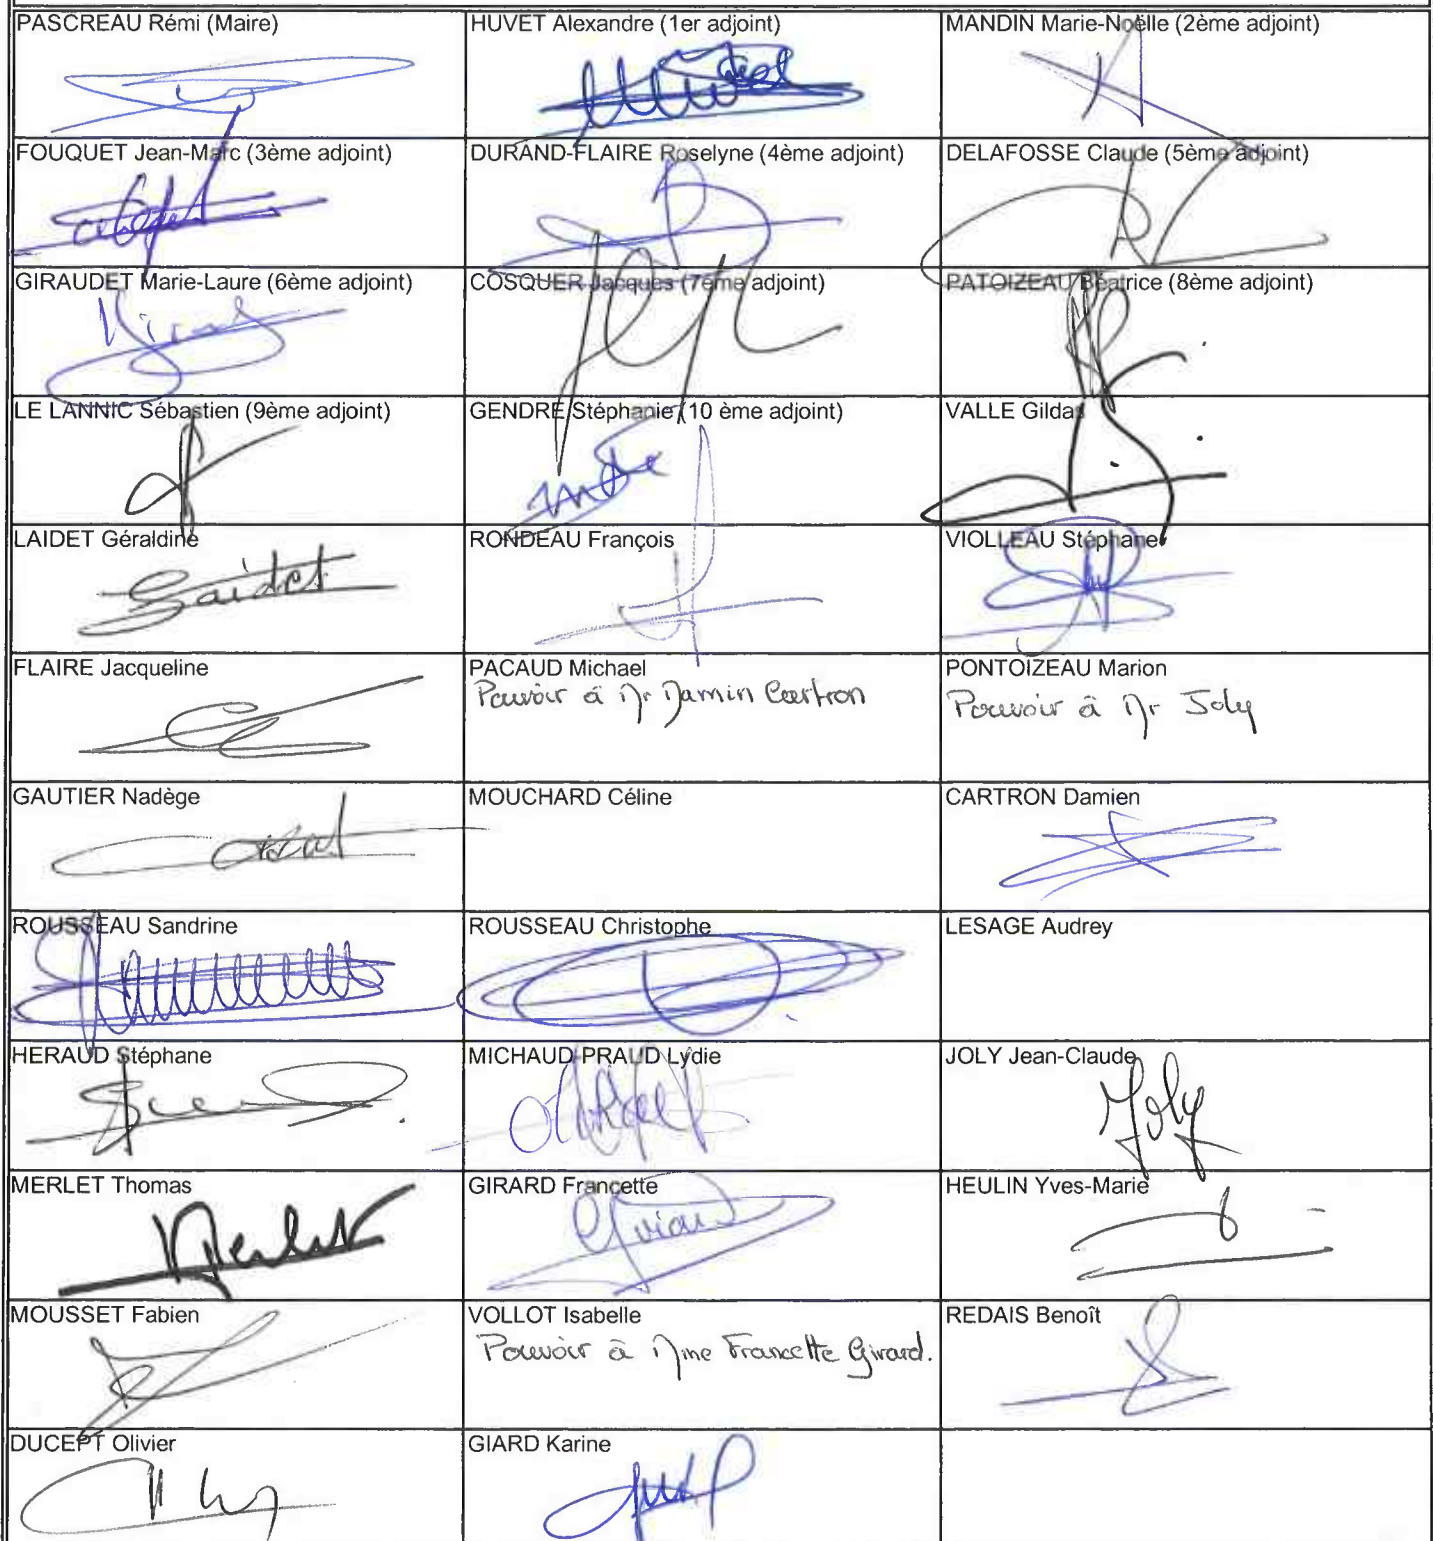 PASCREAU Rémi (Maire)
HUVET Alexandre (1er adjoint)
MANDIN Marie-Noëlle (2ème adjoint)
FOUQUET Jean-Marc (3ème adjoint)
DURAND-FLAIRE Roselyne (4ème adjoint)
DELAFOSSE Claude (5ème adjoint)
GIRAUDET Marie-Laure (6ème adjoint)
COSQUER Jacques (7ème adjoint)
PATOIZEAU Béatrice (8ème adjoint)
LE LANNIC Sébastien (9ème adjoint)
GENDRE Stéphanie (10 ème adjoint)
VALLE Gildas
LAIDET Géraldine
Laidet
RONDEAU François
VIOLLEAU Stéphane
FLAIRE Jacqueline
PACAUD Michael
Pouvoir à Mr Damien Cartron
PONTOIZEAU Marion
Pouvoir à Mr Joly
GAUTIER Nadège
MOUCHARD Céline
CARTRON Damien
ROUSSEAU Sandrine
ROUSSEAU Christophe
LESAGE Audrey
HERAUD Stéphane
MICHAUD-PRAUD Lydie
JOLY Jean-Claude
Joly
MERLET Thomas
Merlet
GIRARD Francette
Girard
HEULIN Yves-Marie
MOUSSET Fabien
VOLLOT Isabelle
Pouvoir à Mme Francette Girard.
REDAIS Benoît
DUCEPT Olivier
GIARD Karine